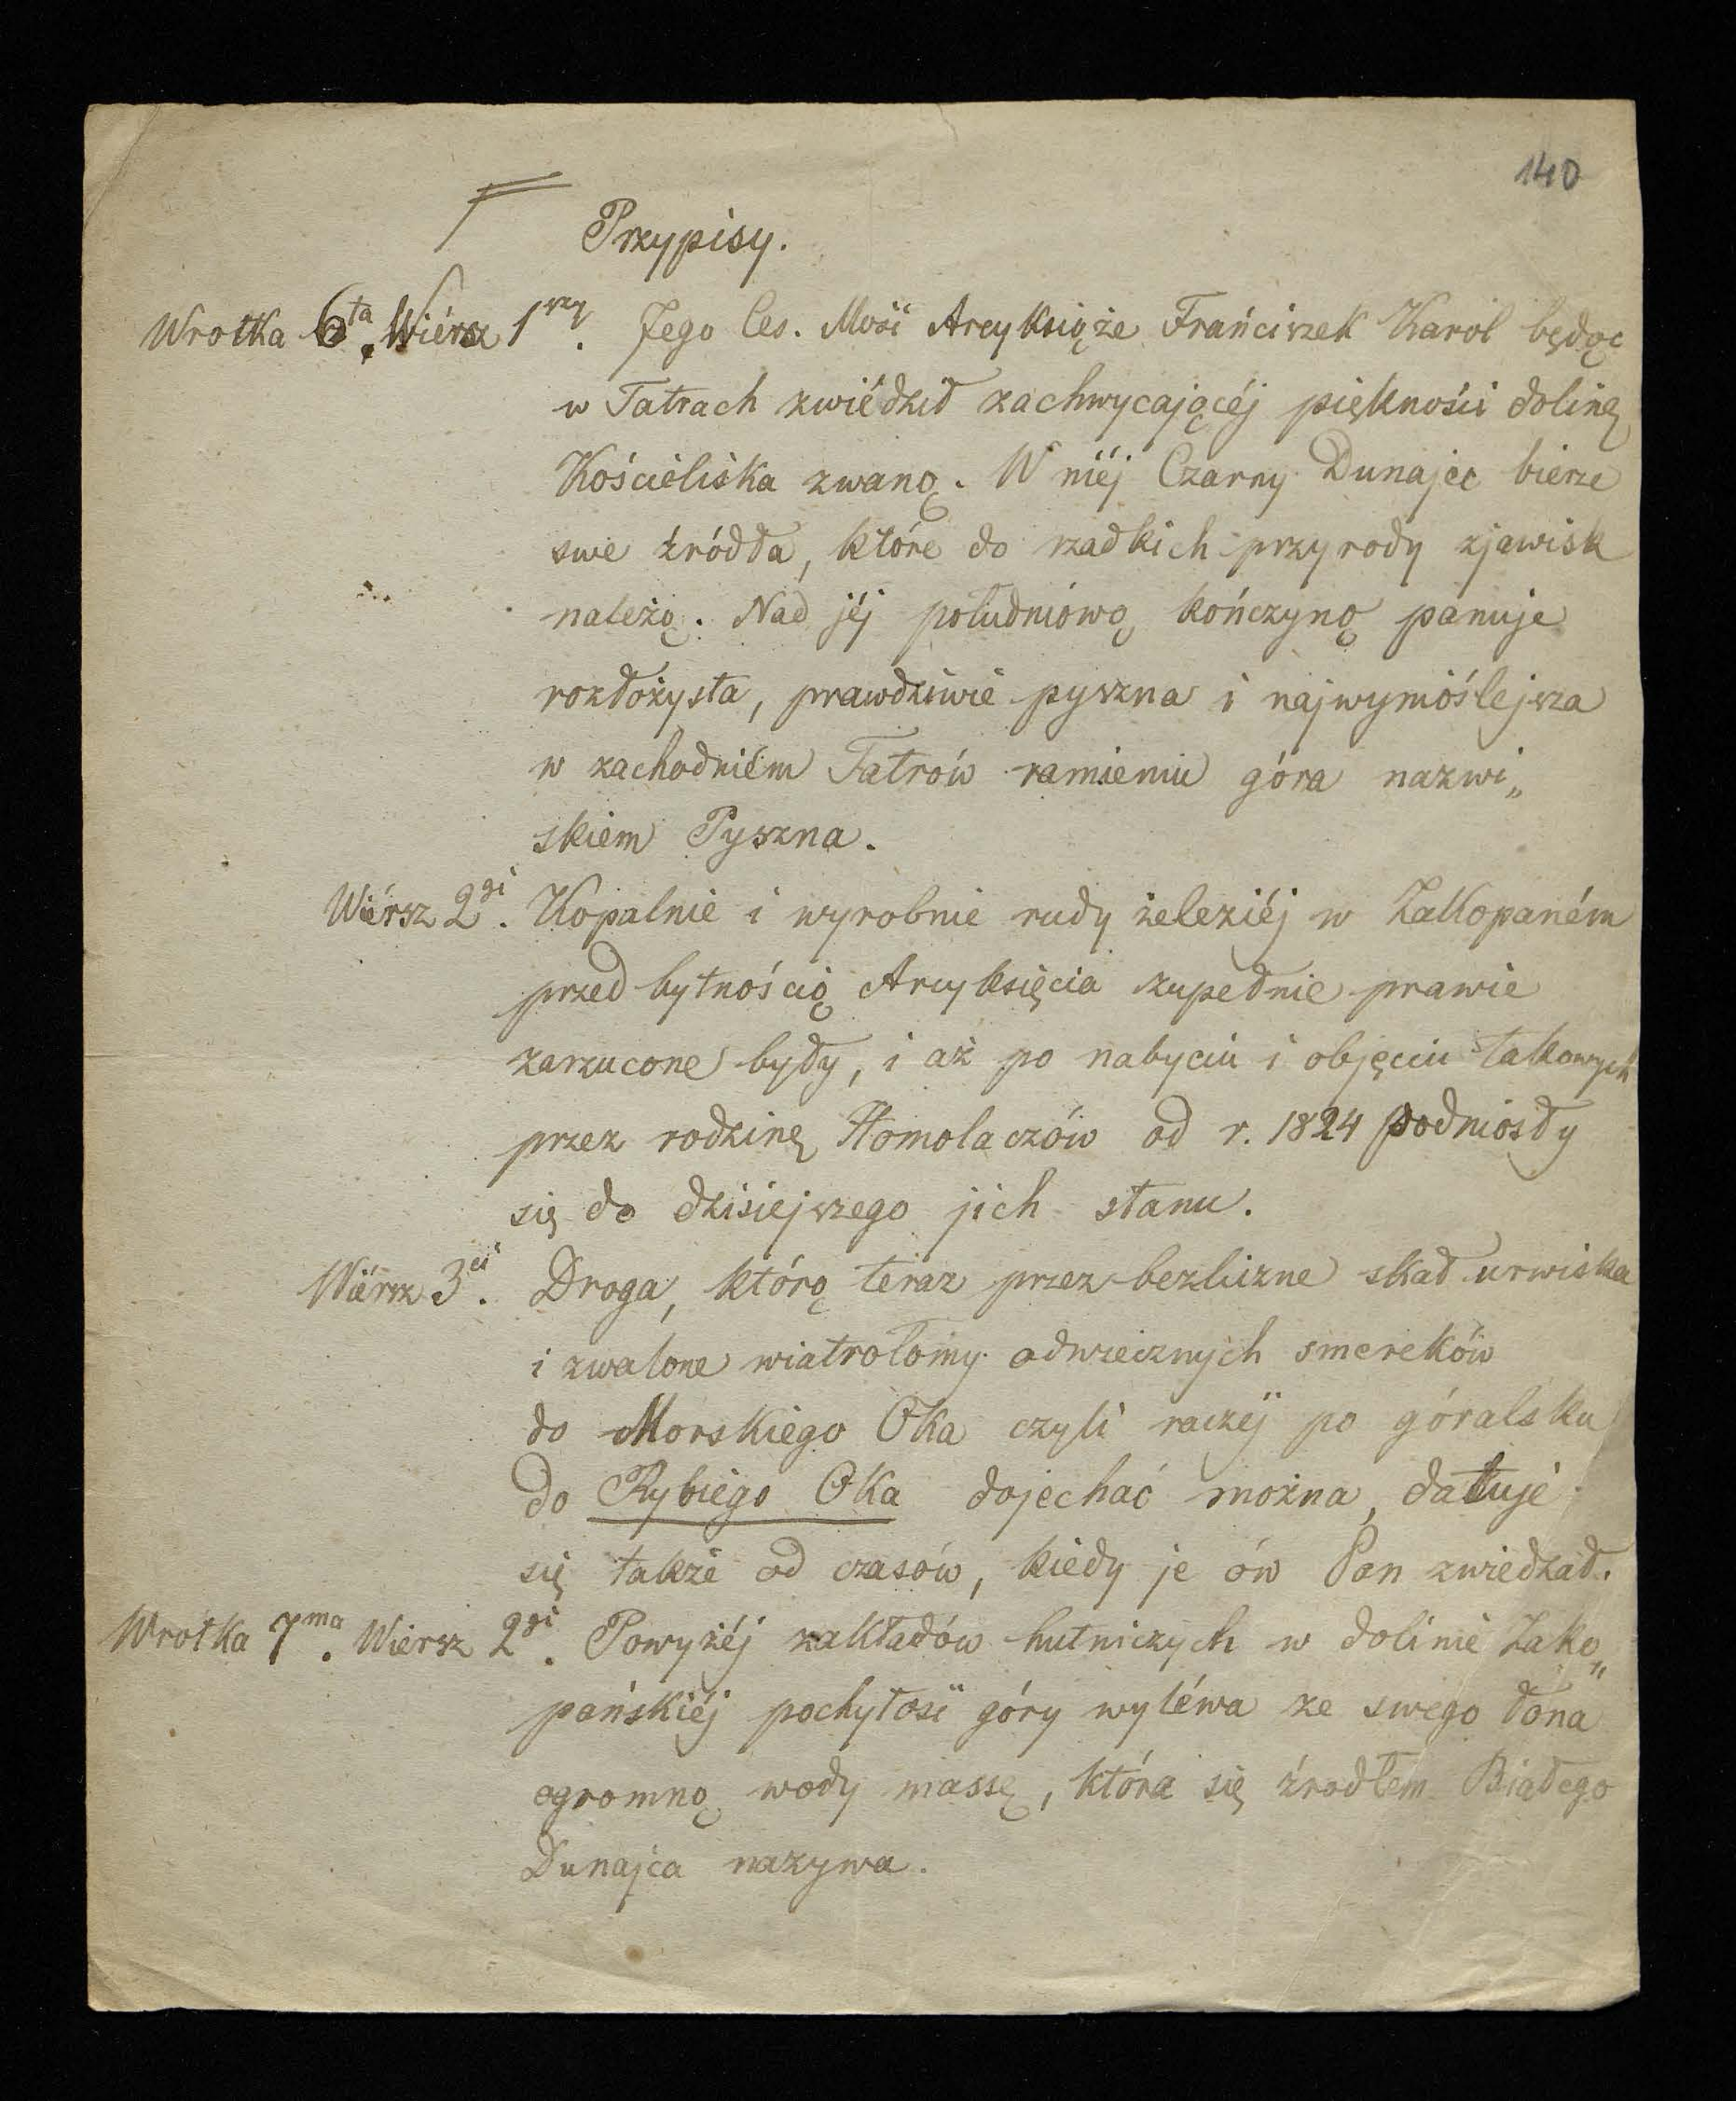 140
Przypisy.
Wrotka 6ta. Wiérsz 1rzy. Jego Ces. Mość Arcyksiąże Frańciszek Karol będąc
w Tatrach zwiédził zachwycającéj piękności dolinę
Kościeliska zwaną. W niéj Czarny Dunajec bierze
swe źródła, które do rzadkich przyrody zjawisk
należą. Nad jéj południową kończyną panuje
rozłożysta, prawdziwie pyszna i najwynioślejsza
w zachodniém Tatrów ramieniu góra nazwi„
skiem Pyszna.
Wiérsz 2gi. Kopalnie i wyrobnie rudy żelezéj w Zakopaném
przed bytnością Arcyksięcia zupełnie prawie
zarzucone były, i aż po nabyciu i objęciu takowych
przez rodzinę Homolaczów od r. 1824 podniosły
się do dzisiejszego jich stanu.
Wiérsz 3ci. Droga, którą teraz przez bezliczne skał urwiska
i zwalone wiatrołomy odwiecznych smereków
do Morskiego Oka czyli raczéj po góralsku
do Rybiego Oka dojechać można, datuje
się także od czasów, kiedy je ów Pan zwiedzał.
Wrotka 7ma. Wiersz 2gi. Powyżéj zakładów hutniczych w dolinie Zako„
pańskiéj pochyłość góry wyléwa ze swego łona
ogromną wody massę, która się źrodłem Białego
Dunajca nazywa.